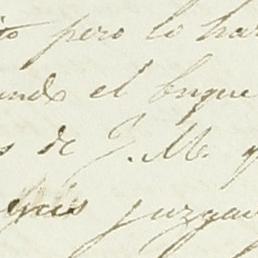 to pero lo har
ando el buque
s de J. M. q
juzgan